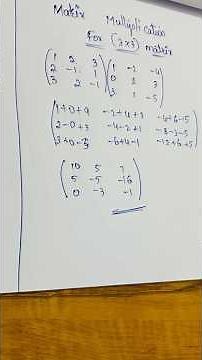 Matrix Multiplication
For (3x3) matrix
(1 2 3) (1 -2 -4)
(2 -1 1) (0 2 3)
(3 2 -1) (3 1 -5)
(1+0+9 -2+4+3 -4+6-15)
(2-0+3 -4-2+1 -8-3-5)
(3+0-3 -6+4-1 -12+6+5)
(10 5
5 -5 -16
0 -3 -1)